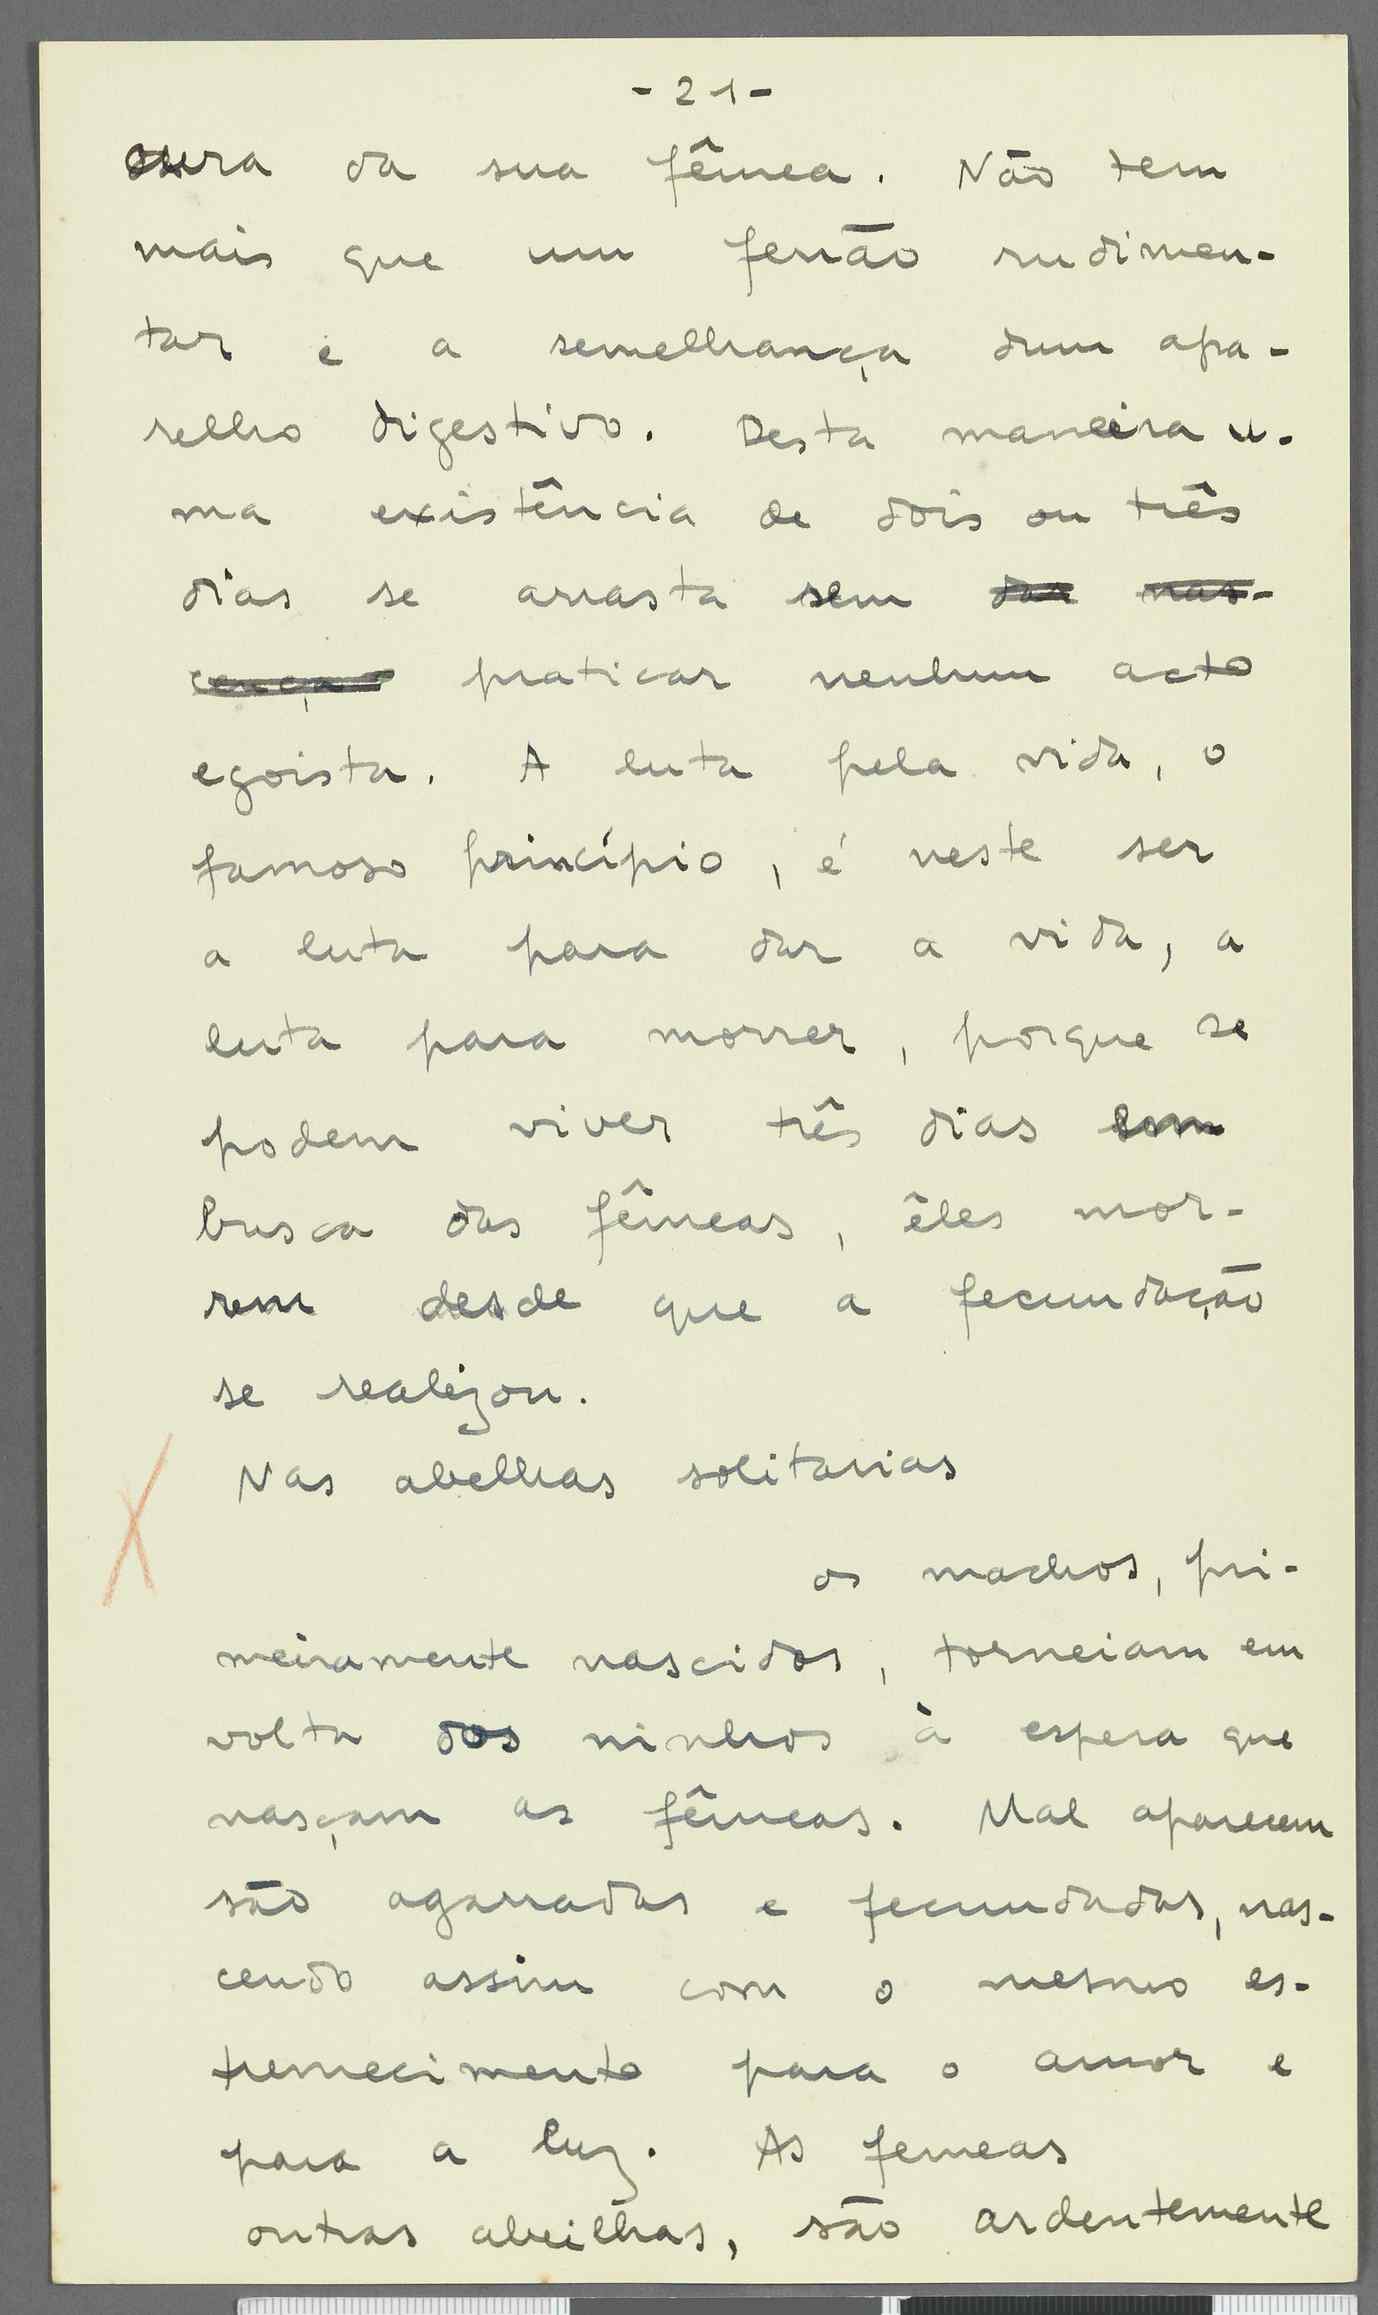 -21-
cura da sua fêmea. Não tem
mais que um ferrão rudimen-
tar e a semelhança dum apa-
relho digestivo. Desta maneira u-
ma existência de dois ou três
dias se arrasta sem dar nas-
cença praticar nenhum acto
egoista. A luta pela vida, o
famoso princípio, é neste ser
a luta para dar a vida, a
luta para morrer, porque se
podem viver três dias em
busca das fêmeas, êles mor-
rem desde que a fecundação
se realizou.
Nas abelhas solitarias
os machos, pri-
meiramente nascidos, torneiam em
volta dos ninhos à espera que
nasçam as fêmeas. Mal aparecem
são agarradas e fecundadas, nas-
cendo assim com o mesmo es-
tremecimento para o amor e
para a luz. As femeas
outras abeilhas, são ardentemente